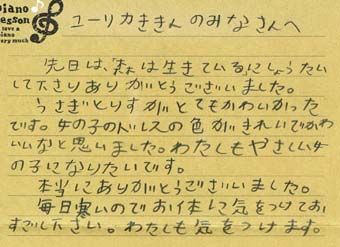 Piano
Lesson
I have a
piano
very much
ユーリカききんのみなさんへ
先日は、「森は生きている」にしょうたい
して下さりありがとうございました。
うさぎとりすがとてもかわいかった
です。女の子のドレスの色がきれいでかわ
いいなと思いました。わたしもやさしい女
の子になりたいです。
本当にありがとうございました。
毎日寒いのでお体に気をつけてお
すごし下さい。わたしも気をつけます。